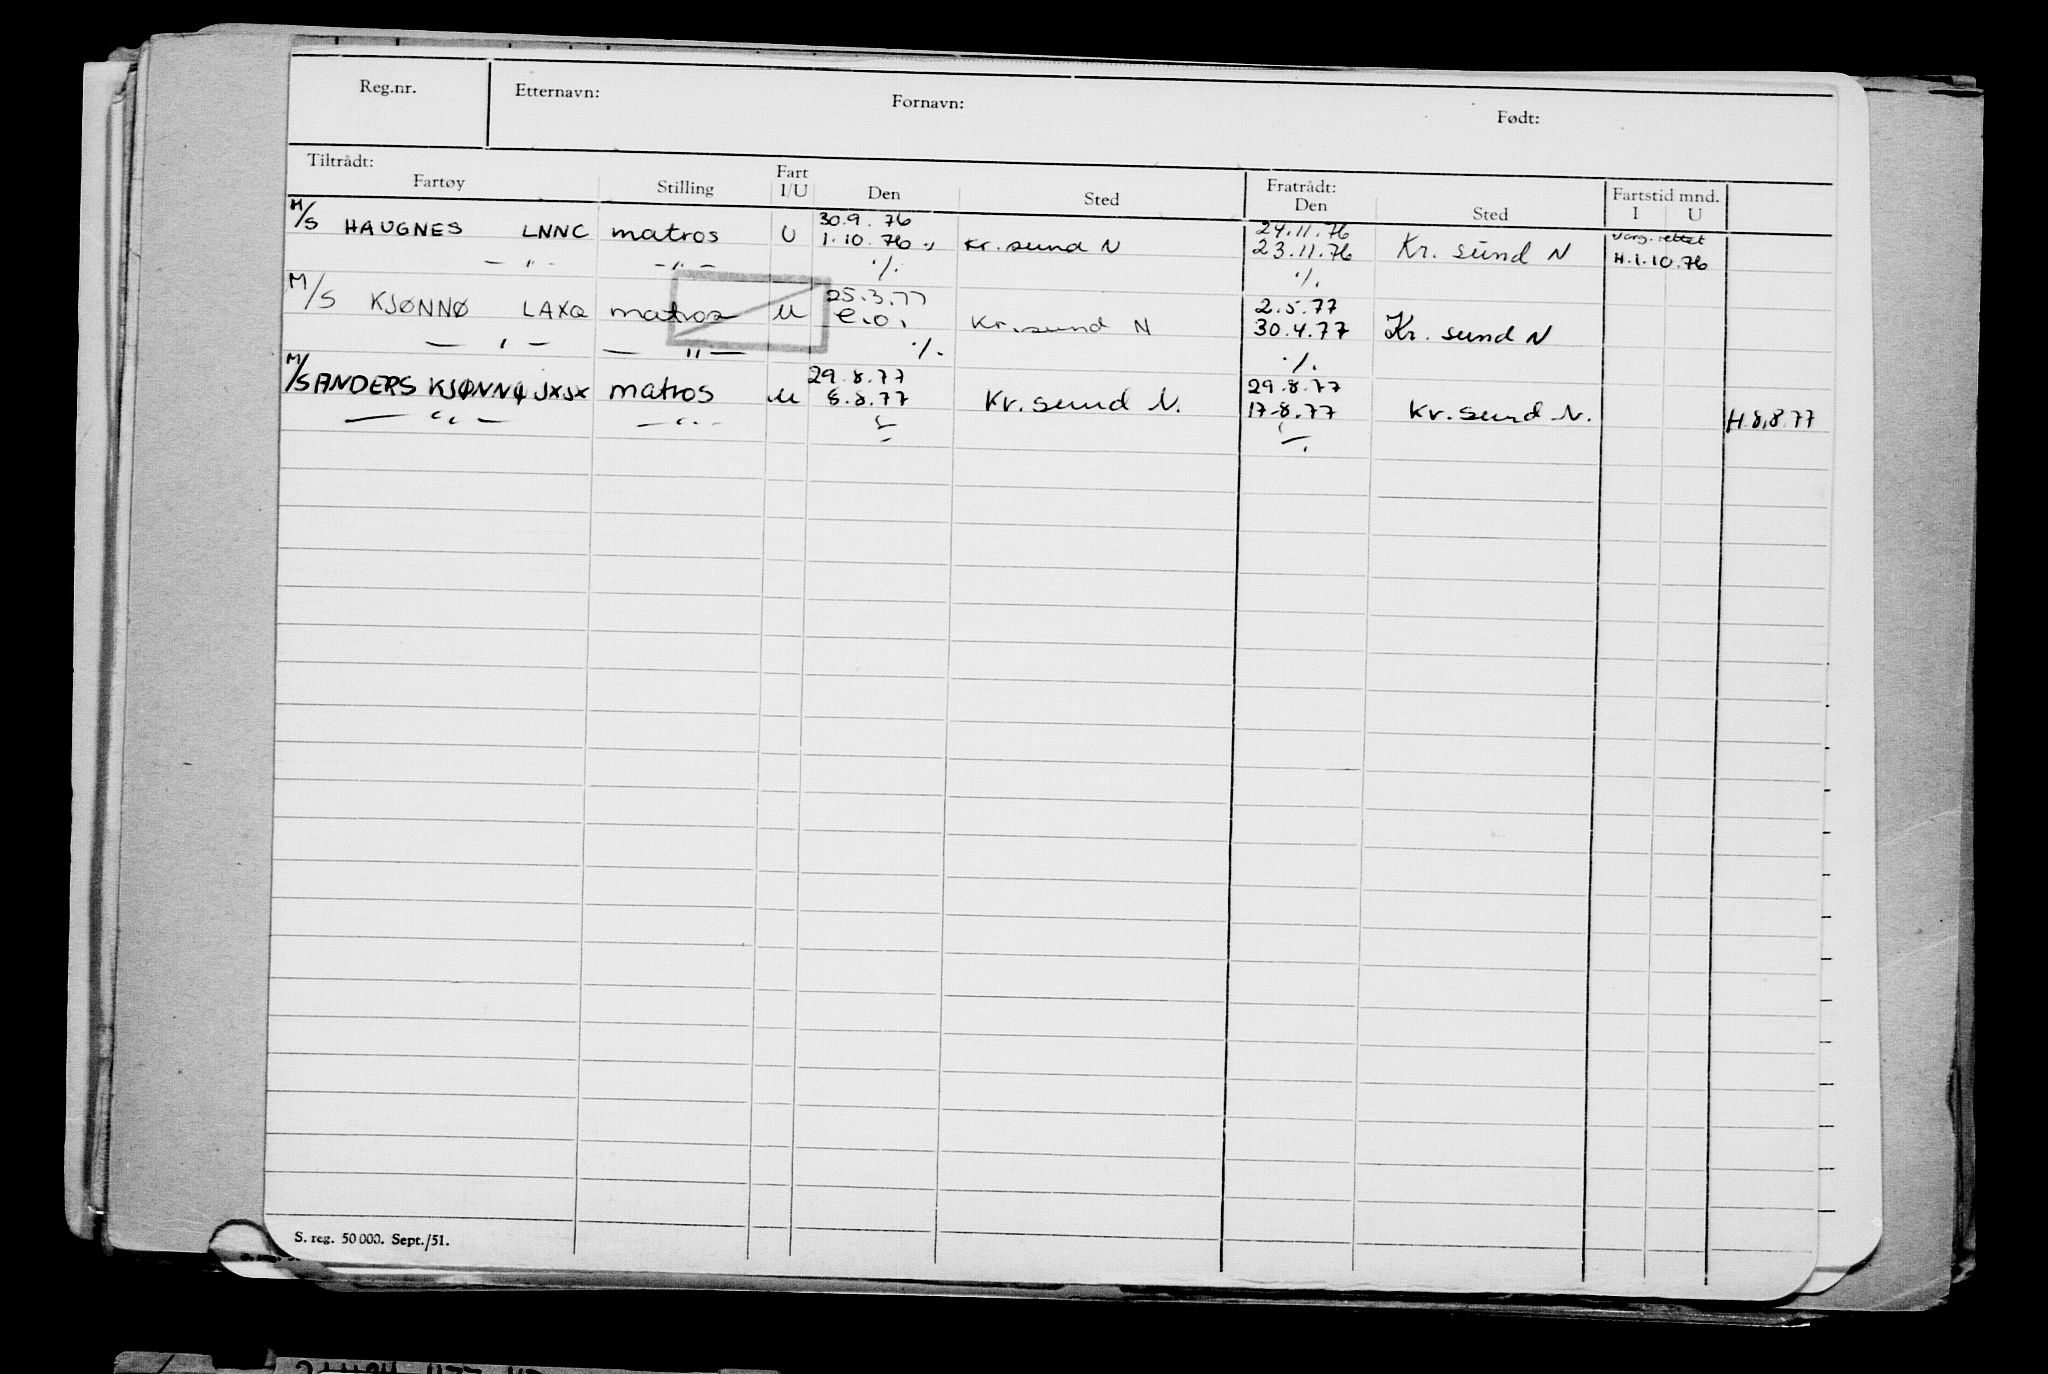 Reg.nr. Etternavn: Fornavn: Født:
Tiltrådt: Fart Fratrådt: Fartstid mnd.
Fartøy Stilling I/U Den Sted Den Sted I U
30.9.76 24.11.76
M/S HAUGNES LNNC matros U 1.10.76 Kr.sund N 23.11.76 Kr. sund N H.1.10.76
— " — — " — ./. ./.
25.3.77 2.5.77
M/S KJØNNØ LAXQ matros U e.o. Kr.sund N 30.4.77 Kr. sund N
— " — — " — ./. ./.
29.8.77 29.8.77
M/S ANDERS KJØNNØ JXJX matros U 8.8.77 Kr.sund N. 17.8.77 Kr.sund N. H.8.8.77
— " — — " —
S. reg. 50 000. Sept./51.